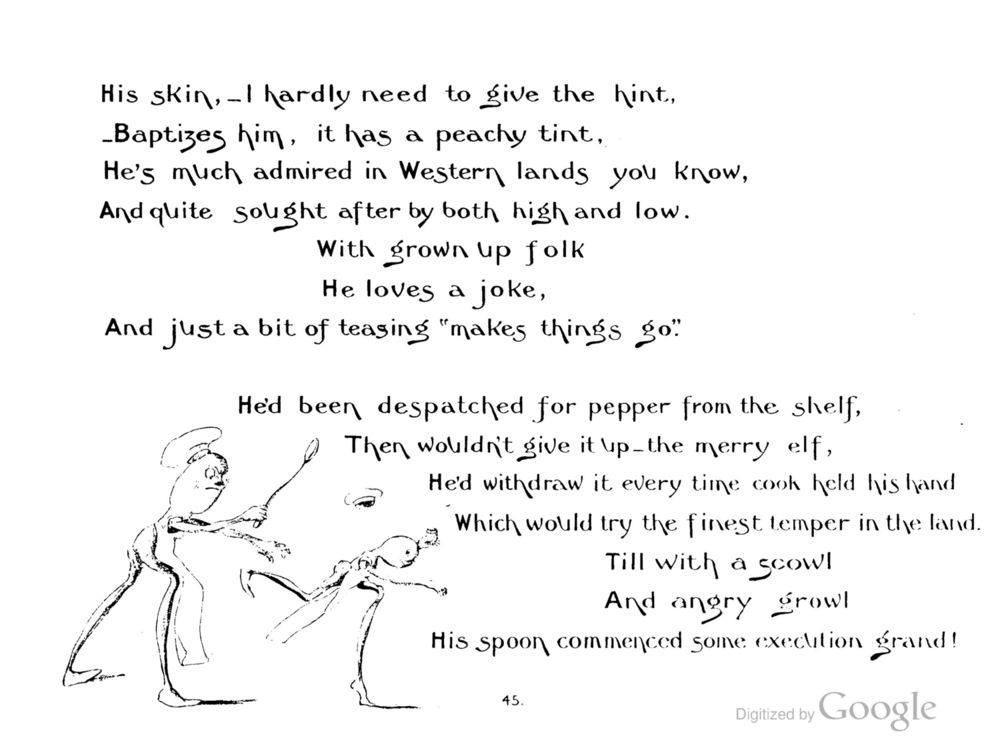 His skin,—I hardly need to give the hint,
—Baptizes him, it has a peachy tint,
He's much admired in Western lands you know,
And quite sought after by both high and low.
With grown up folk
He loves a joke,
And just a bit of teasing "makes things go".
He'd been despatched for pepper from the shelf,
Then wouldn't give it up—the merry elf,
He'd withdraw it every time cook held his hand
Which would try the finest temper in the land.
Till with a scowl
And angry growl
His spoon commenced some execution grand!
45.
Digitized by Google